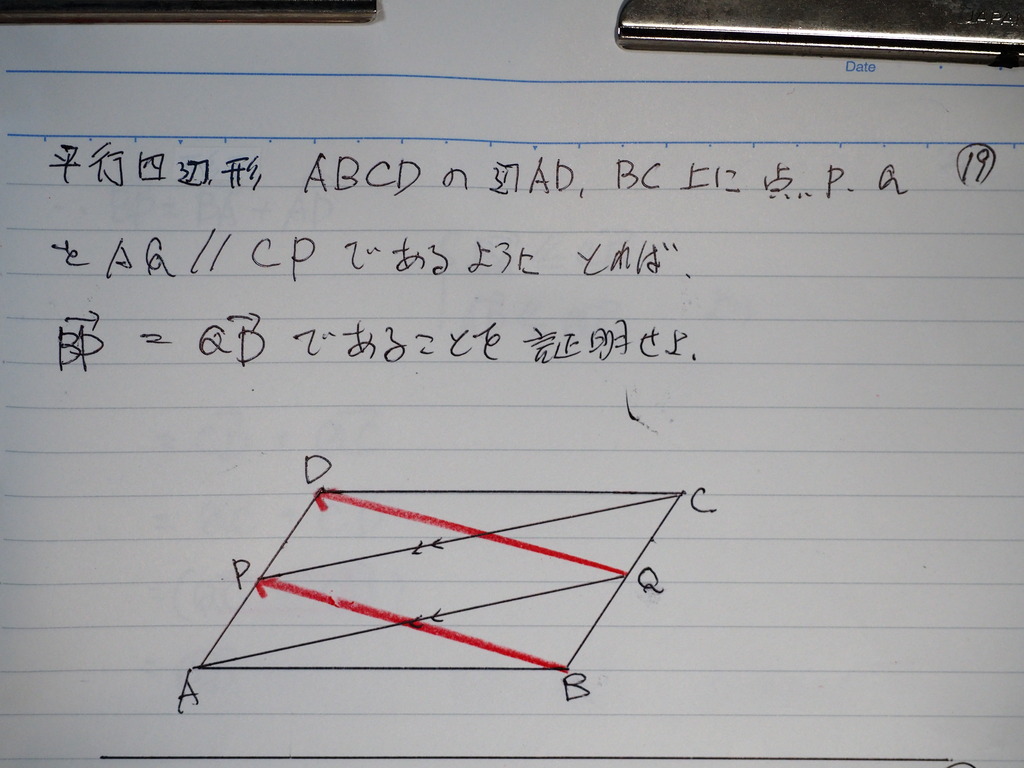 Date
平行四辺形 ABCD の辺AD, BC 上に点 P. Q ⑲
を AQ // CP であるように とれば.
BP = QD であることを 証明せよ.
D
C
P
Q
A
B